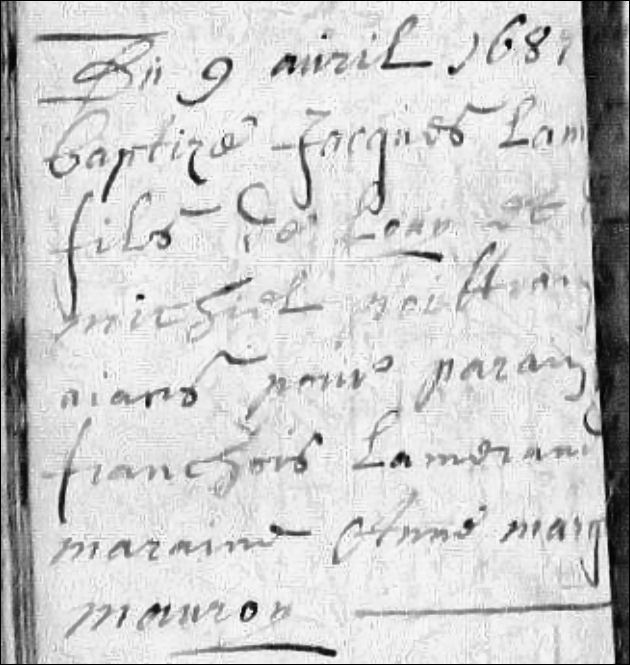 Du 9 avril 1687
baptize Jacques Lam
fils de Loui et
michiel
aians pour parain
franchois Lamerand
maraine Anne marg
mauron